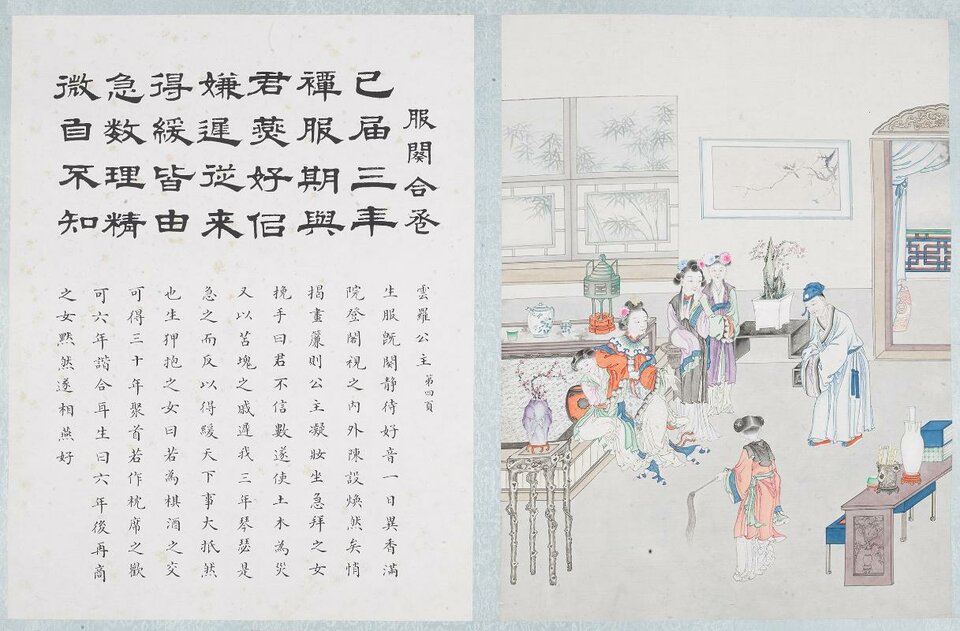 服闋合卺
已届三年
禫服期與
君燕好侣
嫌遲從来
得緩皆由
急数理精
微自不知
雲羅公主 第四頁
生服既闋静待好音一日異香滿
院登閣視之內外陳設煥然矣悄
揭畫簾則公主凝妝坐急拜之女
挽手曰君不信數遂使土木為災
又以苫塊之戚遲我三年琴瑟是
急之而反以得緩天下事大抵然
也生狎抱之女曰若為棋酒之交
可得三十年聚首若作枕席之歡
可六年諧合耳生曰六年後再商
之女黙然遂相燕好